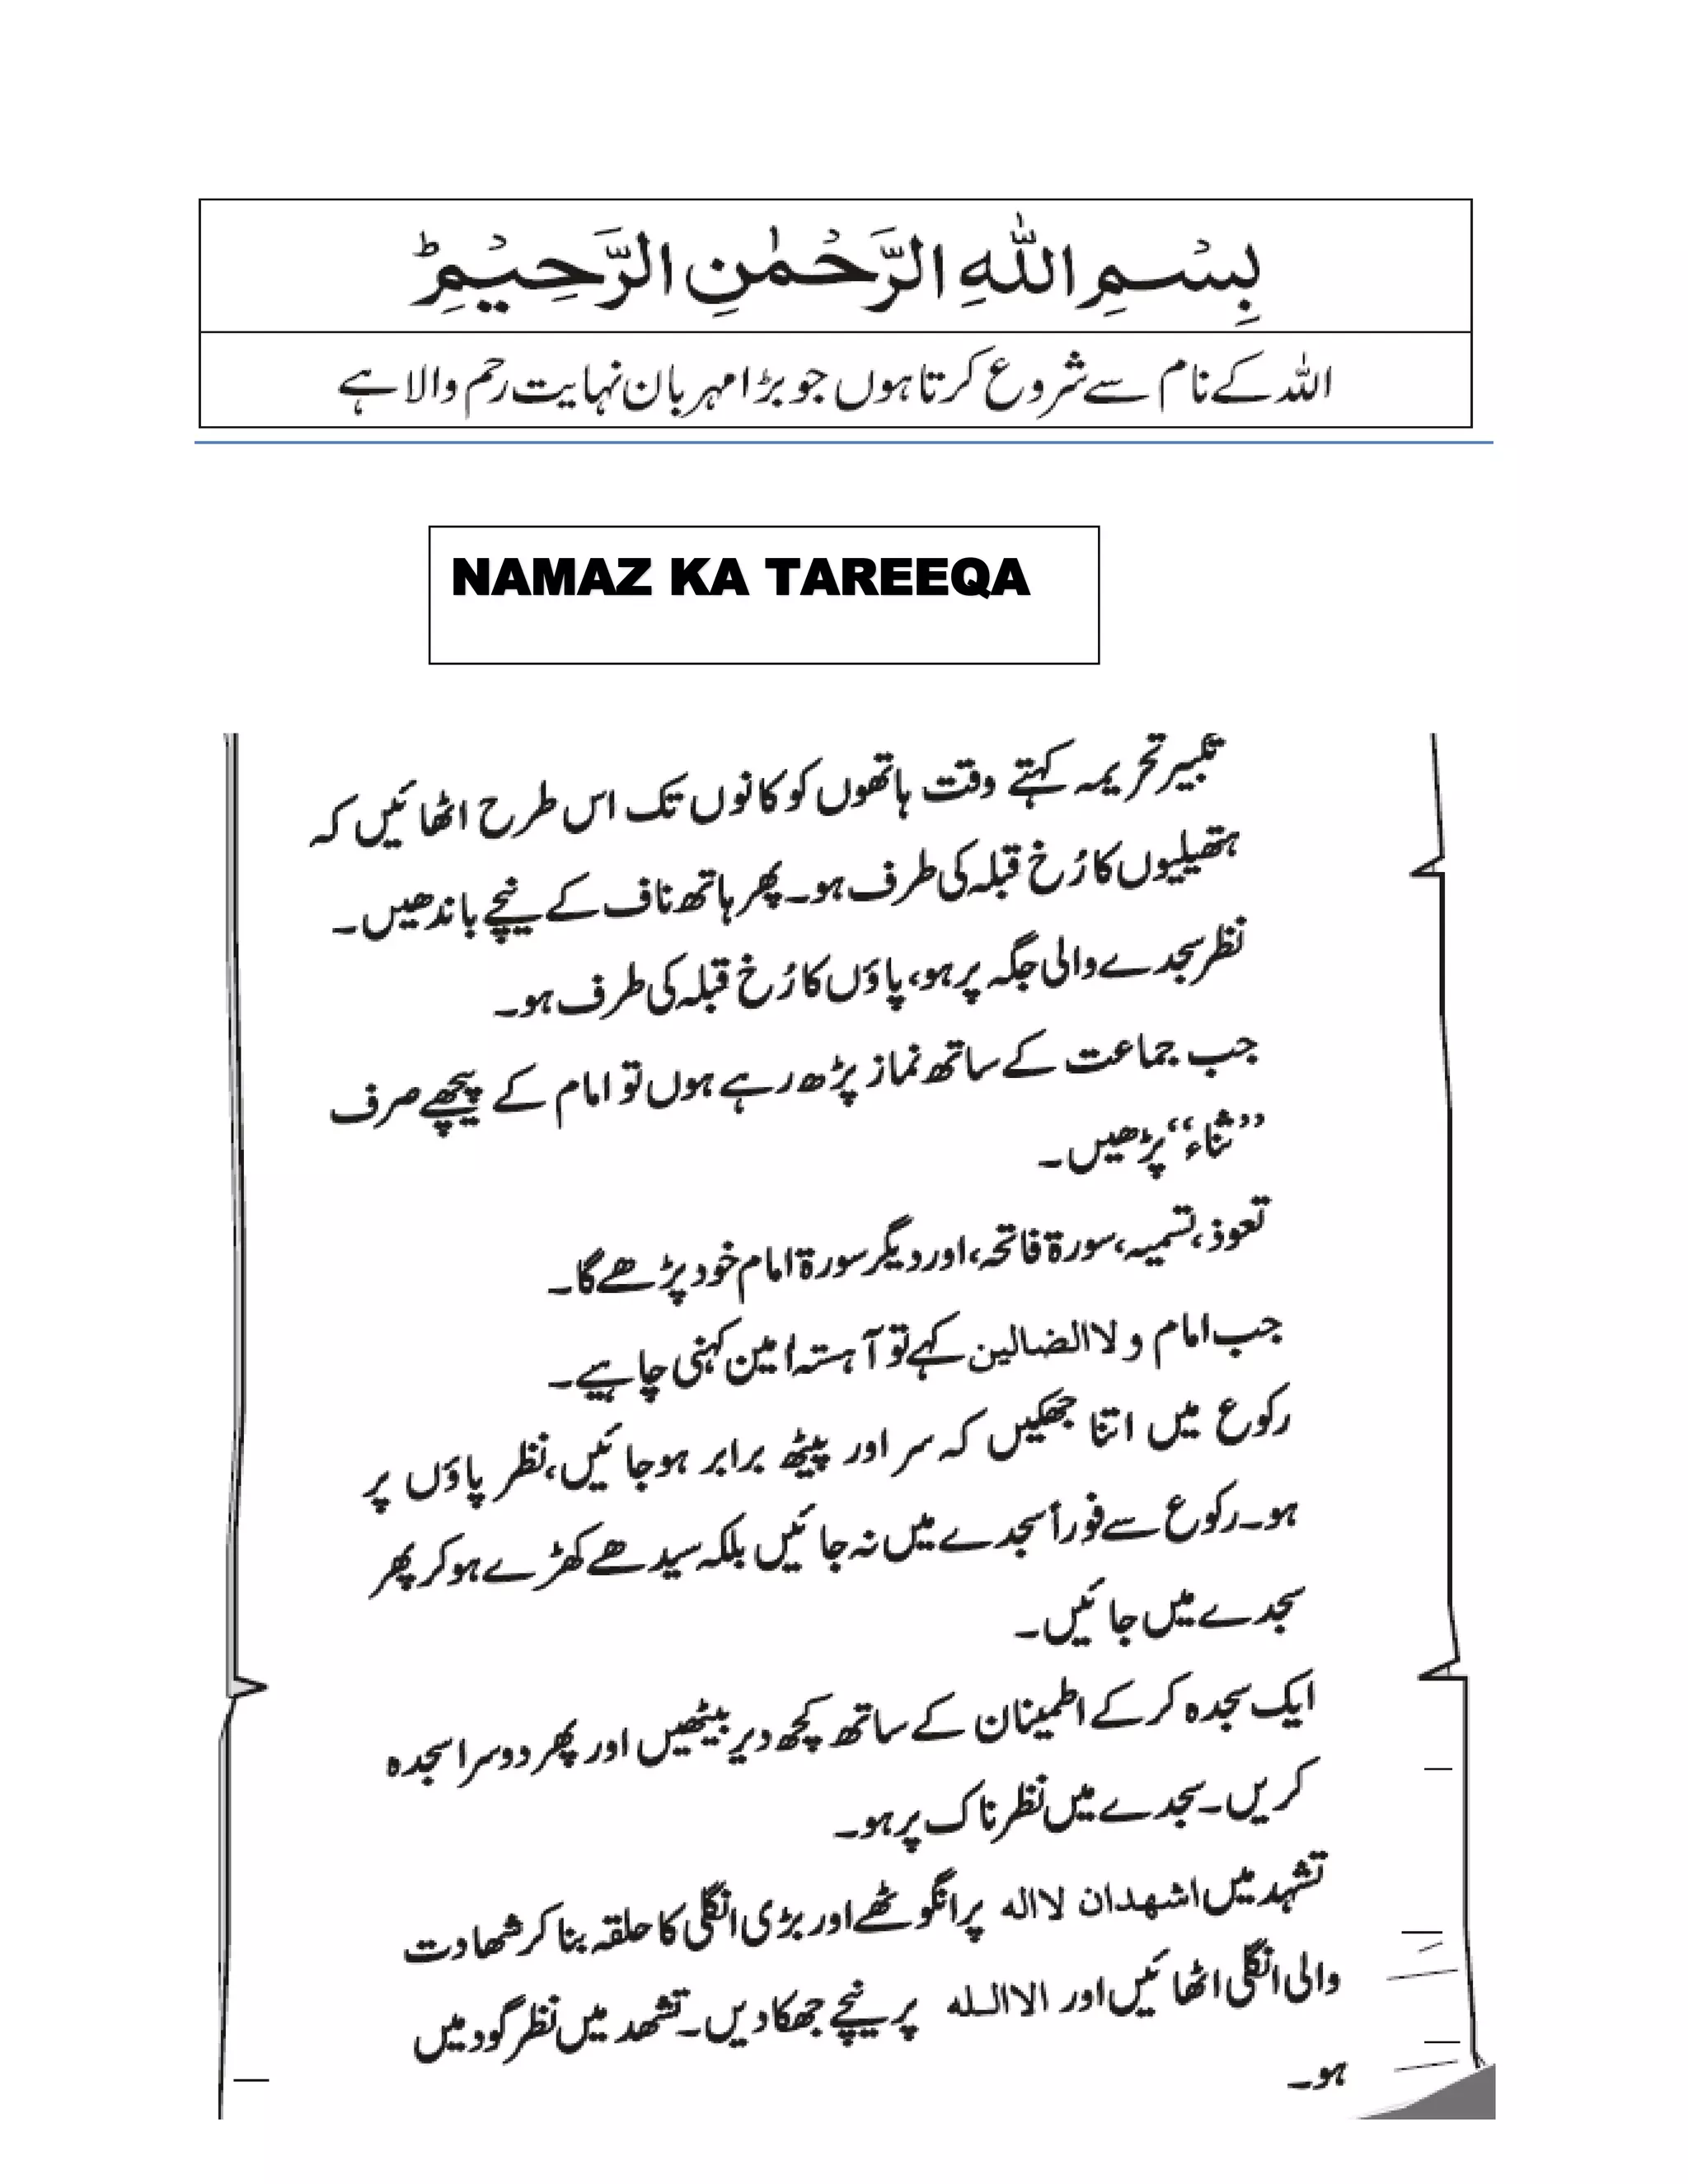 بِسْمِ اللهِ الرَّحْمٰنِ الرَّحِيْمِ ط
اللہ کے نام سے شروع کرتا ہوں جو بڑا مہربان نہایت رحم والا ہے
NAMAZ KA TAREEQA
تکبیر تحریمہ کہتے وقت ہاتھوں کو کانوں تک اس طرح اٹھائیں کہ
ہتھیلیوں کا رُخ قبلہ کی طرف ہو۔ پھر ہاتھ ناف کے نیچے باندھیں۔
نظر سجدے والی جگہ پر ہو، پاؤں کا رُخ قبلہ کی طرف ہو۔
جب جماعت کے ساتھ نماز پڑھ رہے ہوں تو امام کے پیچھے صرف
”ثناء“ پڑھیں۔
تعوذ، تسمیہ، سورۃ فاتحہ، اور دیگر سورۃ امام خود پڑھے گا۔
جب امام و لاالضالین کہے تو آہستہ امین کہنی چاہیے۔
رکوع میں اتنا جھکیں کہ سر اور پیٹھ برابر ہوجائیں، نظر پاؤں پر
ہو۔ رکوع سے فوراً سجدے میں نہ جائیں بلکہ سیدھے کھڑے ہوکر پھر
سجدے میں جائیں۔
ایک سجدہ کرکے اطمینان کے ساتھ کچھ دیر بیٹھیں اور پھر دوسرا سجدہ
کریں۔ سجدے میں نظر ناک پر ہو۔
تشہد میں اشهدان لااله پر انگوٹھے اور بڑی انگلی کا حلقہ بنا کر شھادت
والی انگلی اٹھائیں اور الااللہ پر نیچے جھکا دیں۔ تشھد میں نظر گود میں
ہو۔